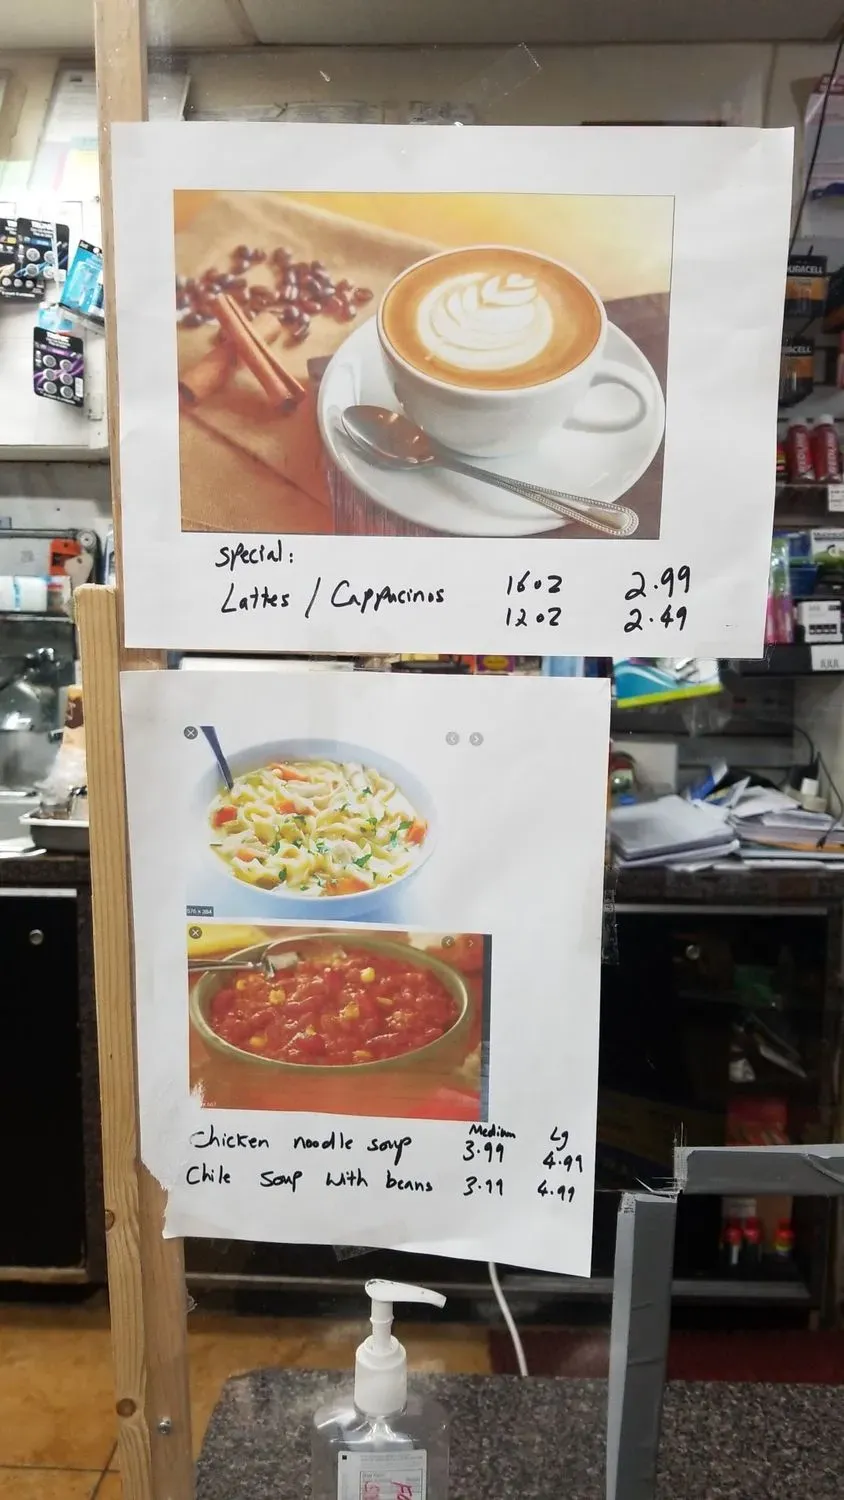 Special:
Lattes / Cappucinos 16oz 2.99
12oz 2.49
576 × 384
Medium Lg
Chicken noodle soup 3.99 4.99
Chile Soup with beans 3.99 4.99
DURACELL
JUUL